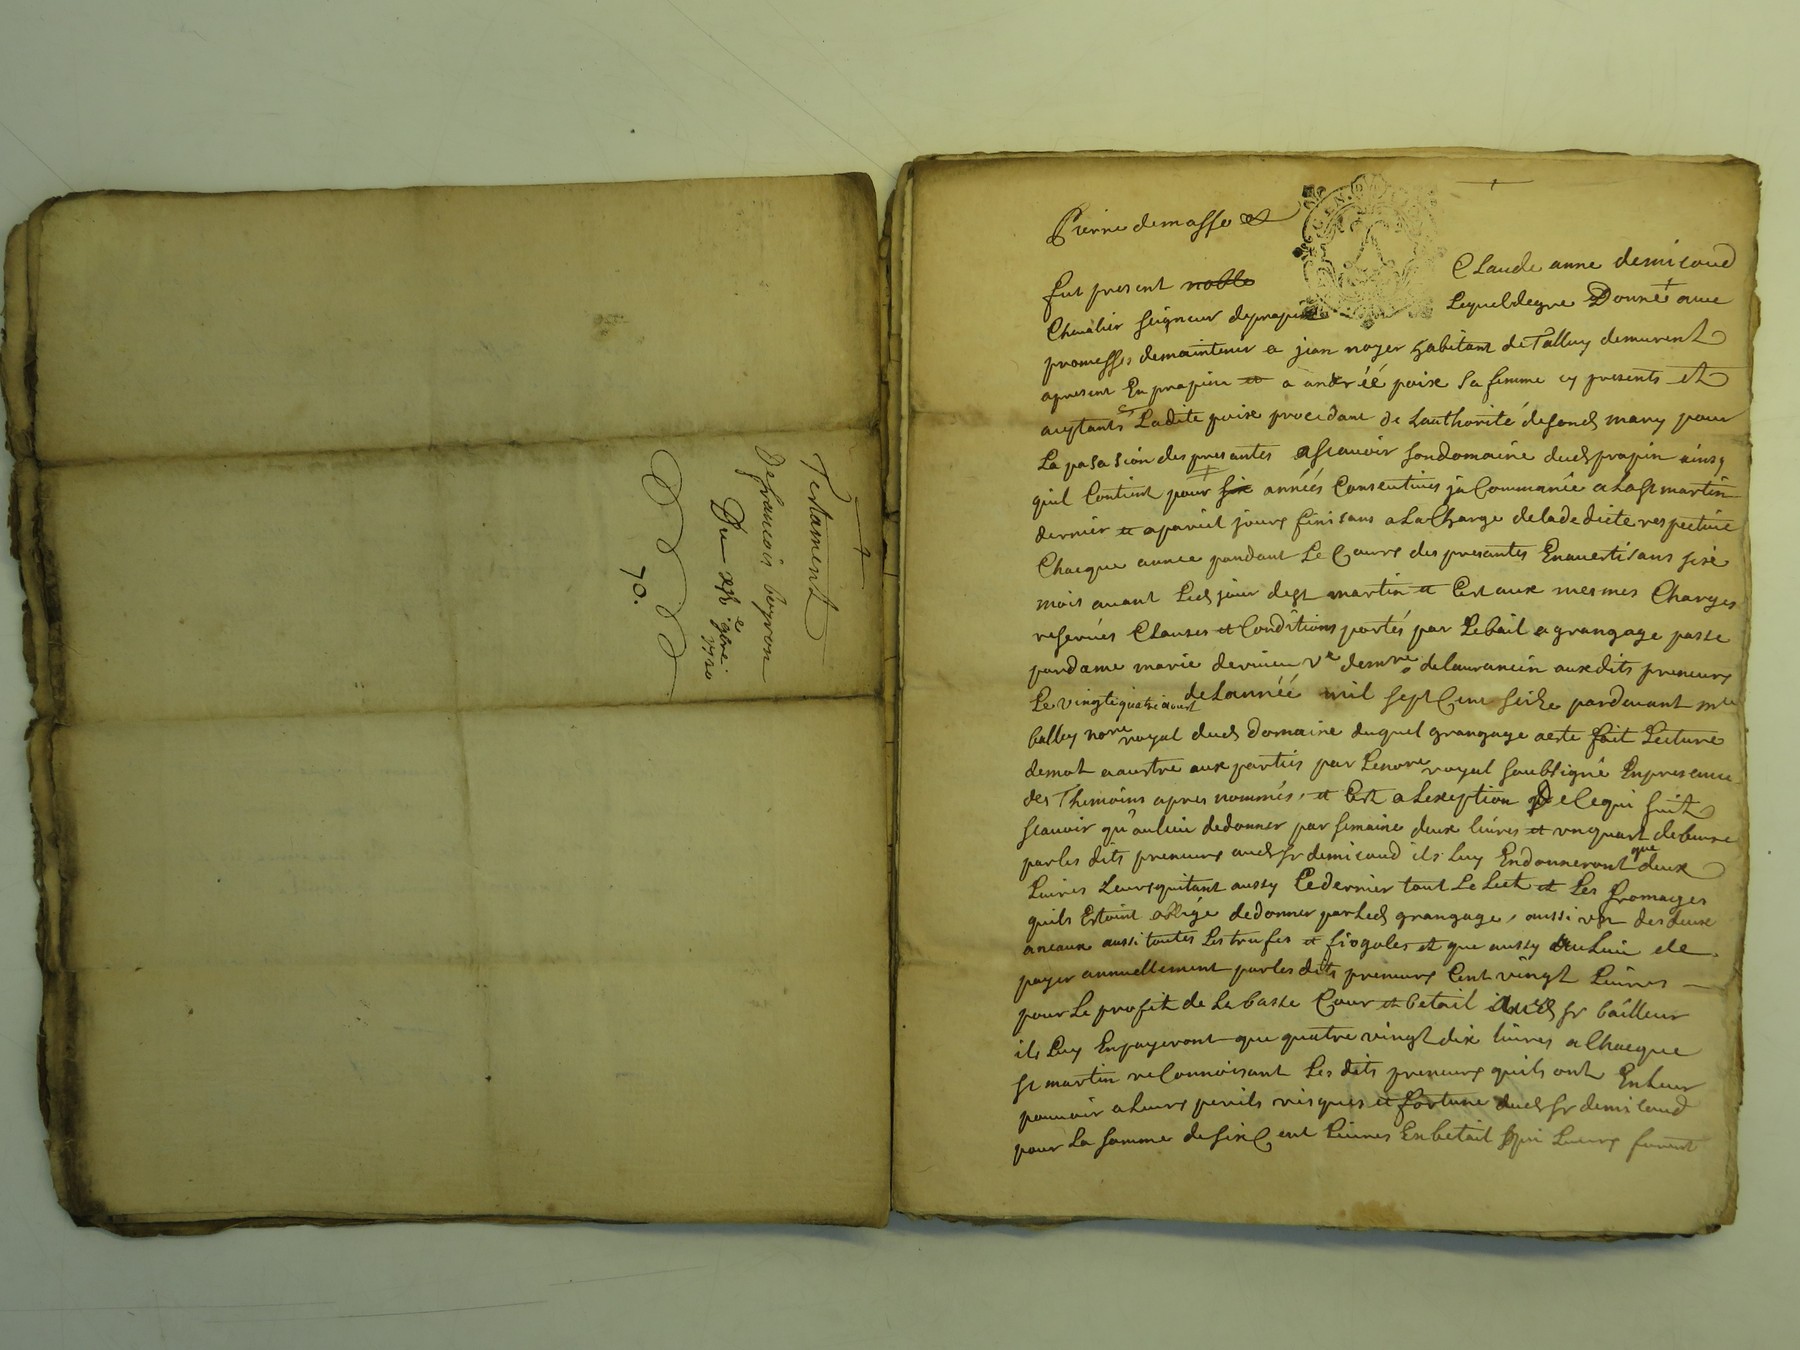 Testament
de francois boyron
Du xxe 9bre
1720
70.
Pierre demasso et
fut present noble Claude anne demicoud
Chevalier seigneur deprapin Lequel degre Donné avec
promesse, demaintenir a jean noyer habitant de Talluy demurent
apresent En prapin et a andréé poixe sa femme cy presents et
aceptants Ladite poixe procedant de Lauthorité desond mary pour
La pasasion des presantes ascavoir son domaine dud prapin ainsy
quil Contient pour six années Consecutives ja Commancée a La st martin
dernier et apariel jours finisans a La Charge de la dedicte respective
Chacque année pandant Le Cours des presantes En avertisans sixe
mois avant Led jour de st martin et Cest aux mesmes Charges
reservées Clauses et Conditions portés par Le bail a grangage passe
par dame marie derieu ve demre de laurancin auxdits preneurs
Le vingtiquatre aoust de Lannéé mil sept Cent seize pardevant me
balley nore royal dud domaine duquel grangage a este fait Lecture
demot a austre aux parties par Le nore royal soubsigné En presance
des Themoins apres nommés, et Cest a Lexeption De Ce qui suit
scavoir qu'aulieu dedonner par semaine deux livres et un quart de beurre
par les dits preneurs aud sr demicoud ils Luy En donneront que deux
Livres Leurs quitant aussy Ce dernier tout Le Lait et Les fromages
quils Estoint obligé dedonner par Led grangage, aussi un des deux
aneaux aussi toutes Les trufes et figoles et que aussy au Lieu de
payer annuellement par les dits preneurs Cent vingt Livres
pour Le profit de La basse Cour et betail aud sr bailleur
ils Luy En payeront que quatre vingt dix livres a Chacque
st martin reConnoisant Les dits preneurs quils ont En Leur
pouvoir a Leurs perils risques et fortune dud sr demicoud
pour La somme de six Cent Livres En betail qui Leurs furent